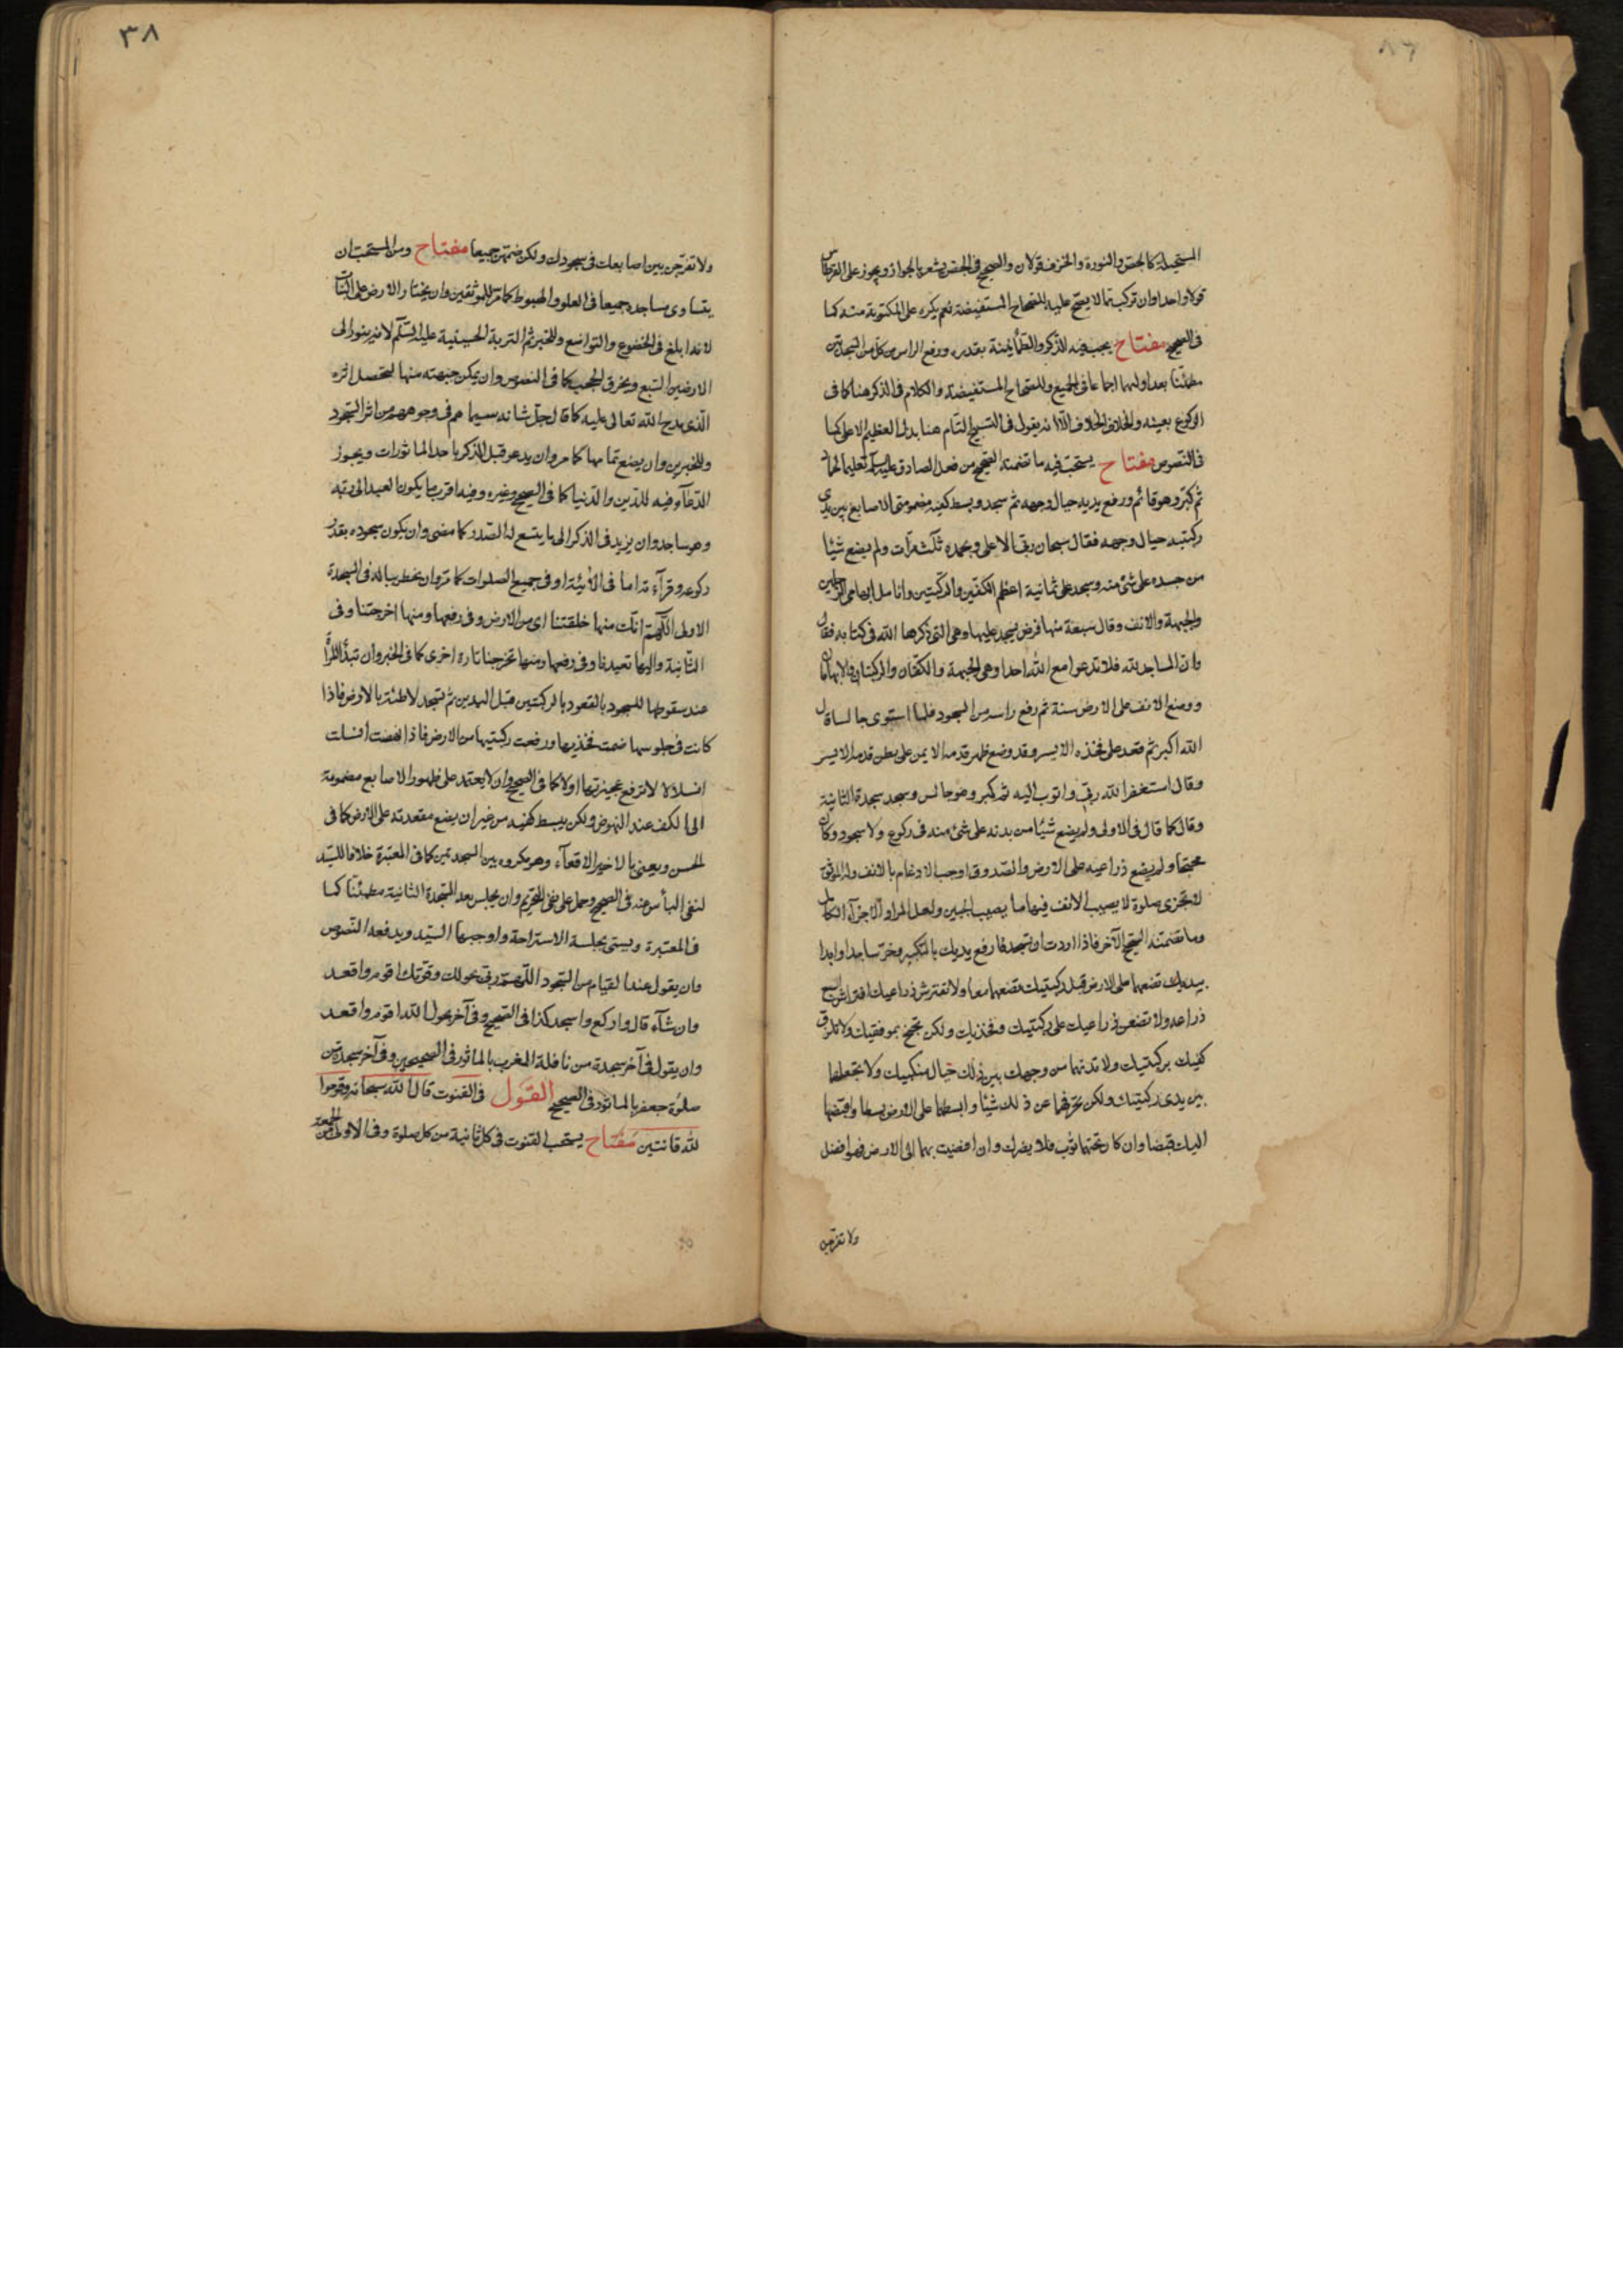 المستحیلة کالجص والنورة والخزف قولان والصحیح فی الجص یشعر بالجواز ویجوز علی القرطاس
قولا واحدا وان ترکب مما لا یصح علیه للصحاح المستفیضة نعم یکره علی المکتوبة منه کما
فی الصحیح مفتاح یجب فیه الذکر والطمأنینة بقدره ورفع الراس من کل من السجدتین
مطمئنا بعد اولیهما اجماعا فی الجمیع وللصحاح المستفیضة والکلام فی الذکر هنا کما فی
الرکوع بعینه والخلاف الخلاف الا انه یقول فی التسبیح التام هنا بدل العظیم الاعلی کما
فی النصوص مفتاح یستحب فیه ما تضمنته الصحیح من فعل الصادق علیه السلم تعلیما لحماد
ثم کبر وهو قائم ورفع یدیه حیال وجهه ثم سجد وبسط کفیه مضمومتی الاصابع بین یدی
رکبتیه حیال وجهه فقال سبحان ربی الاعلی وبحمده ثلث مرات ولم یضع شیئا
من جسده علی شئ منه وسجد علی ثمانیة اعظم الکفین والرکبتین وانامل ابهامی الرجلین
والجبهة والانف وقال سبعة منها فرض یسجد علیها وهی التی ذکرها الله فی کتابه فقال
وان المساجد لله فلا تدعوا مع الله احدا وهی الجبهة والکفان والرکبتان والابهامان
ووضع الانف علی الارض سنة ثم رفع راسه من السجود فلما استوی جالسا قال
الله اکبر ثم قعد علی فخذه الایسر وقد وضع ظهر قدمه الایمن علی بطن قدمه الایسر
وقال استغفر الله ربی واتوب الیه ثم کبر وهو جالس وسجد سجدة الثانیة
وقال کما قال فی الاولی ولم یضع شیئا من بدنه علی شئ منه فی رکوع ولا سجود وکان
مجنحا ولم یضع ذراعیه علی الارض والصدوق اوجب الارغام بالانف وللموثق
لا تجزی صلوة لا یصیب الانف فیها ما یصیب الجبین ولعل المراد الاجزاء الکامل
وما تضمنته الصحیح الآخر فاذا اردت ان تسجد فارفع یدیك بالتکبیر وخر ساجدا وابدا
بیدیك تضعهما علی الارض قبل رکبتیك تضعهما معا ولا تفترش ذراعیك افتراش السبع
ذراعه ولا تضعن ذراعیك علی رکبتیك وفخذیك ولکن تجنح بمرفقیك ولا تلزق
کفیك برکبتیك ولا تدنهما من وجهك بین ذلك حیال منکبیك ولا تجعلهما
بین یدی رکبتیك ولکن تحرفهما عن ذلك شیئا وابسطهما علی الارض بسطا واقبضهما
الیك قبضا وان کان تحتهما ثوب فلا یضرك وان افضیت بهما الی الارض فهو افضل
ولا تفرجن
٣٨
ولا تفرجن بین اصابعك فی سجودك ولکن ضمهن جمیعا مفتاح ومن المستحب ان
یتساوی مساجده جمیعا فی العلو والهبوط کما مر للموثقین وان یختار الارض علی النبات
لانه ابلغ فی الخضوع والتواضع وللخبر ثم التربة الحسینیة علیه السلم لانه ینور الی
الارضین السبع ویخرق الحجب کما فی النصوص وان یمکن جبهته منها لیحصل اثره
الذی مدح الله تعالی علیه کما قال جل شانه سیماهم فی وجوههم من اثر السجود
وللخبرین وان یضع تمامها کما مر وان یدعو قبل الذکر باحد الماثورات ویجوز
الدعاء فیه للدین والدنیا کما فی الصحیح وغیره وفیه اقرب ما یکون العبد الی ربه
وهو ساجد وان یزید فی الذکر الی ما یتسع له الصدر کما مضی وان یکون سجوده بقدر
رکوعه وقراءته اما فی الاثنیة او فی جمیع الصلوات کما مر وان یخطر بباله فی السجدة
الاولی اللهم انك منها خلقتنا ای من الارض وفی رفعها ومنها اخرجتنا وفی
الثانیة والیها تعیدنا وفی رفعها ومنها تخرجنا تارة اخری کما فی الخبر وان تبدأ المرأة
عند سقوطها للسجود بالقعود بالرکبتین قبل الیدین ثم تسجد لاطئة بالارض فاذا
کانت فی جلوسها ضمت فخذیها ورفعت رکبتیها من الارض فاذا نهضت انسلت
انسلالا لا ترفع عجیزتها اولا کما فی الصحیح وان لا یعتمد علی ظهور الاصابع مضمومة
الی الکف عند النهوض ولکن یبسط کفیه من غیر ان یضع مقعدته علی الارض کما فی
الحسن ویعنی بالاخیر الاقعاء وهو مکروه بین السجدتین کما فی المعتبرة خلافا للسید
لنفی البأس عنه فی الصحیح وحمل علی نفی التحریم وان یجلس بعد السجدة الثانیة مطمئنا کما
فی المعتبرة ویسمی بجلسة الاستراحة واوجبها السید ویدفعه النصوص
وان یقول عند القیام من السجود اللهم ربی بحولك وقوتك اقوم واقعد
وان شاء قال وارکع واسجد کذا فی الصحیح وفی آخر بحول الله اقوم واقعد
وان یقول فی آخر سجدة من نافلة المغرب بالماثور فی الصحیحین وفی آخر سجدة من
صلوة جعفر بالماثور فی الصحیح القول فی القنوت قال الله سبحانه وقوموا
لله قانتین مفتاح یستحب القنوت فی کل ثانیة من کل صلوة وفی الاولی من الجمعة